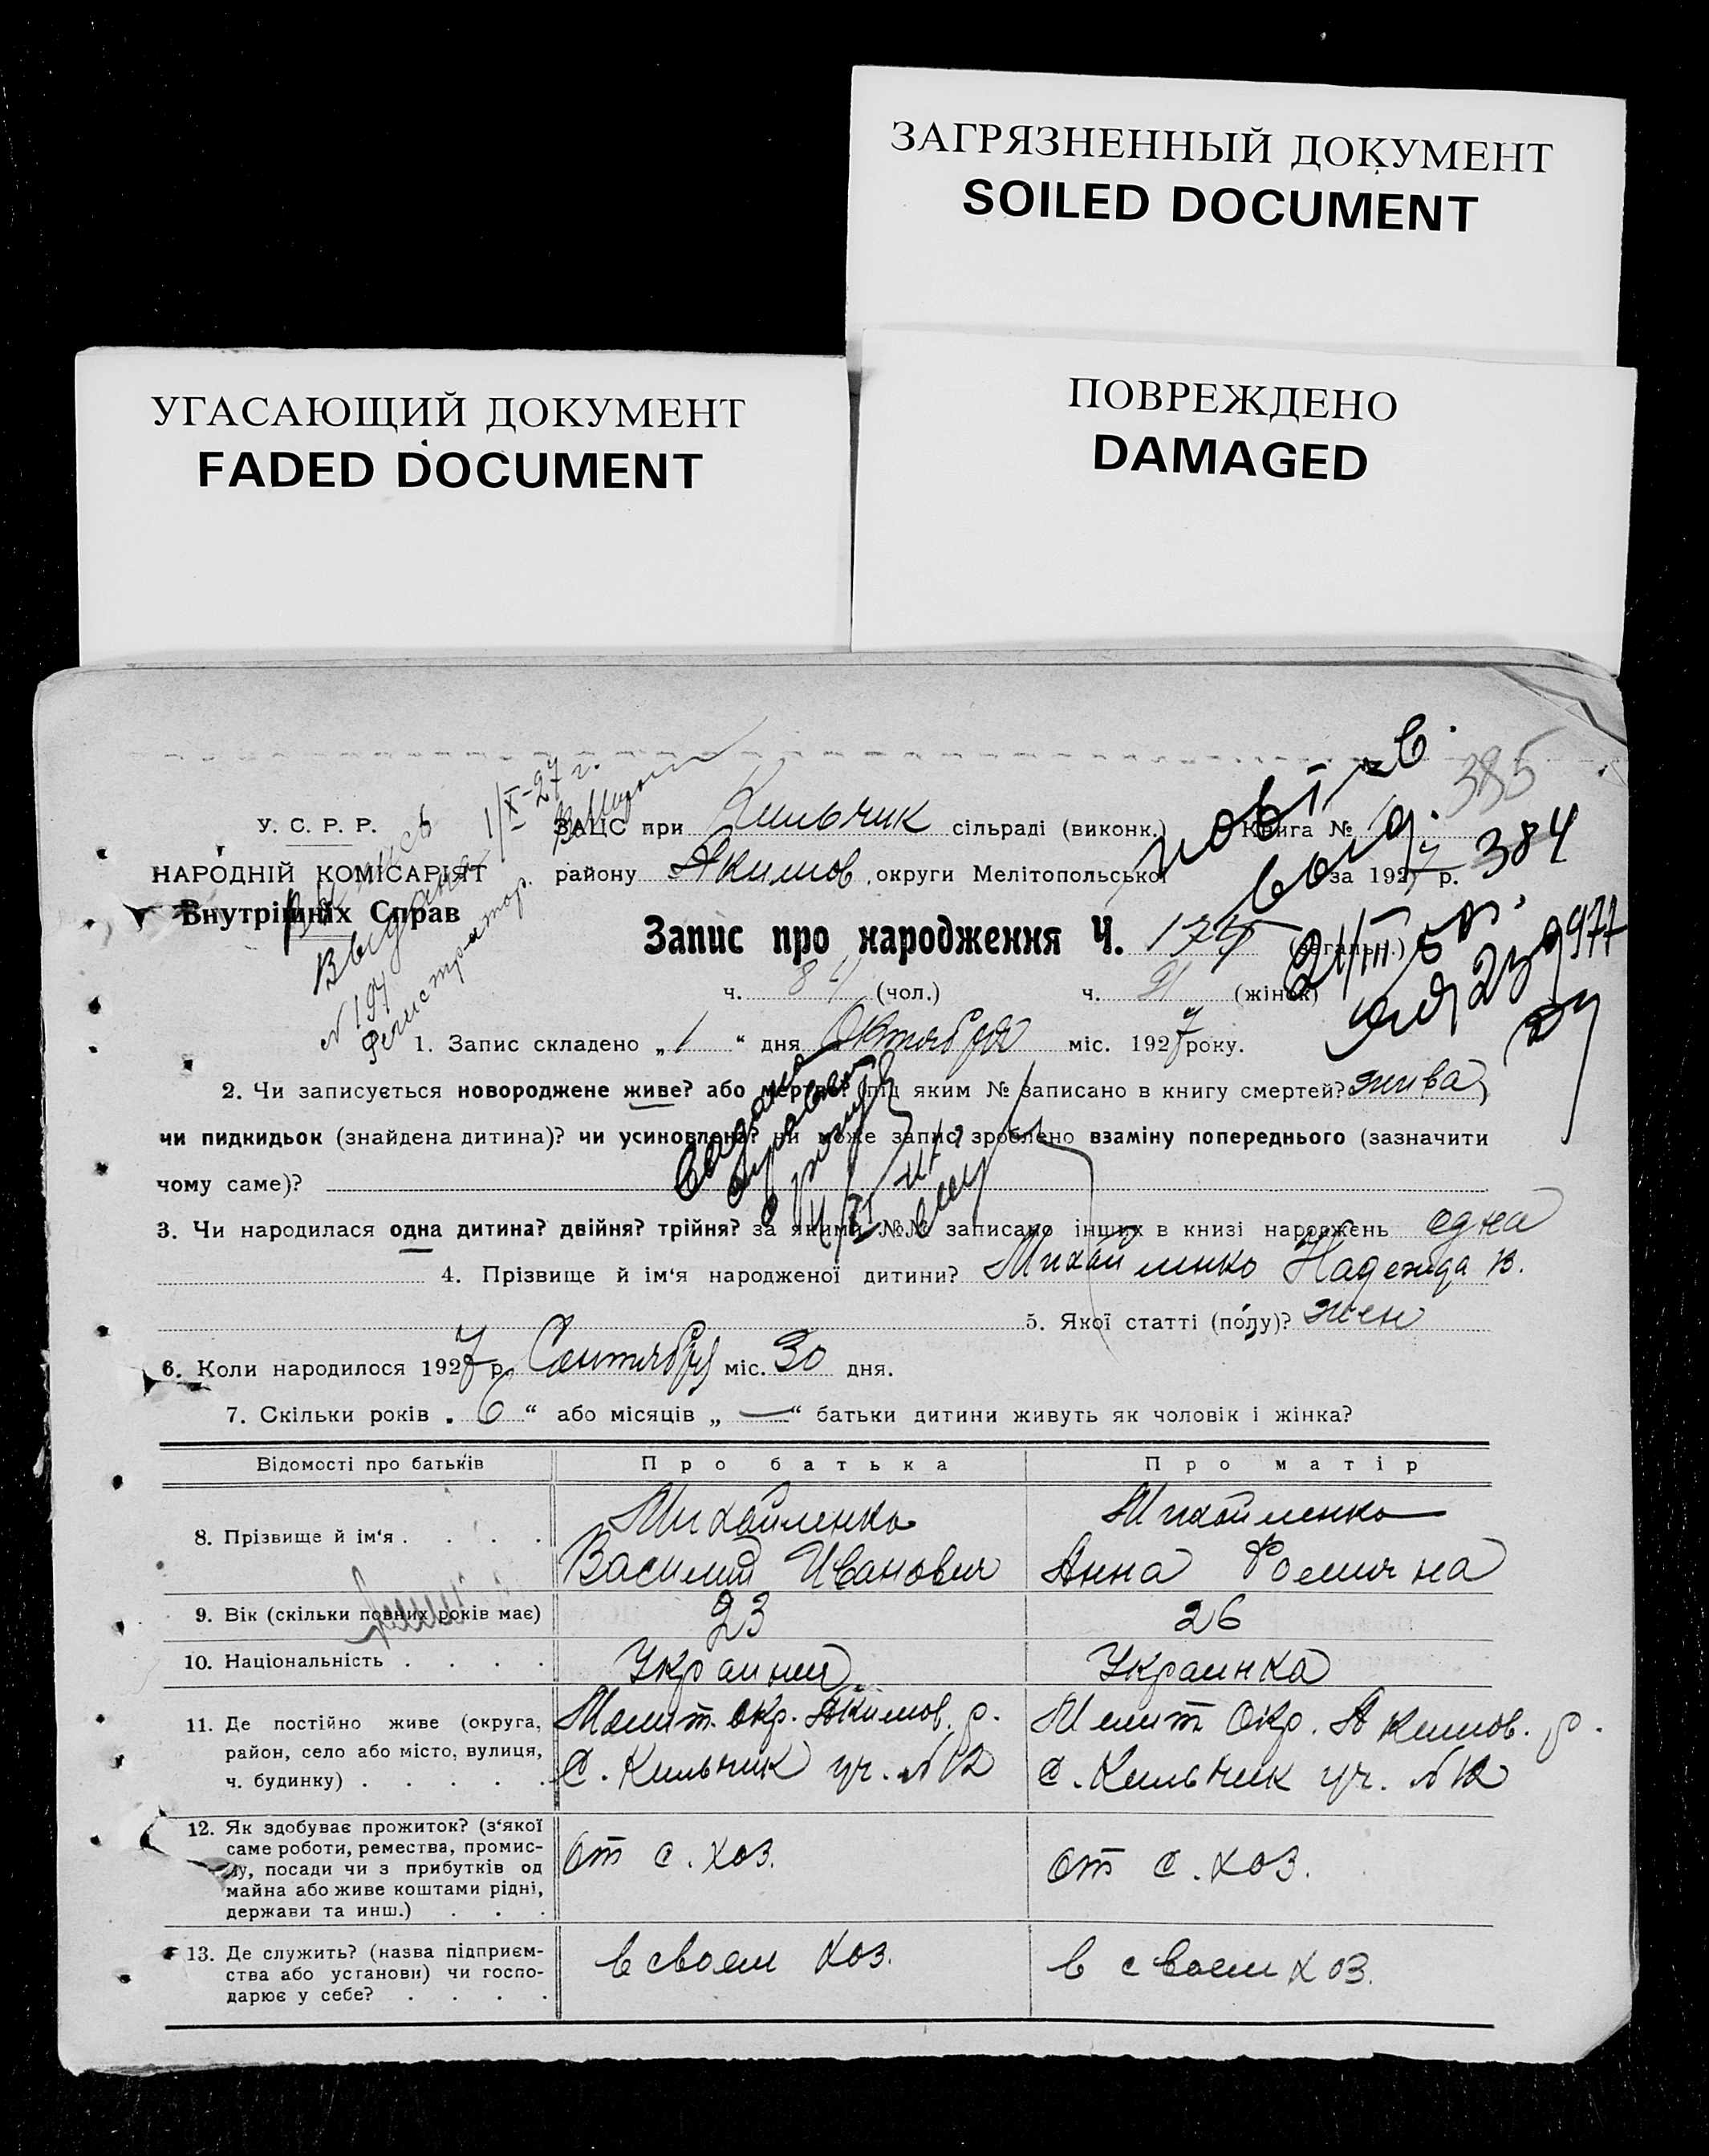 ЗАГРЯЗНЕННЫЙ ДОКУМЕНТ
SOILED DOCUMENT
УГАСАЮЩИЙ ДОКУМЕНТ
FADED DOCUMENT
ПОВРЕЖДЕНО
DAMAGED
385
384
У. С. Р. Р.
НАРОДНІЙ КОМІСАРІЯТ
Внутрішніх Справ
Выпись
Выдана 1/X-27 г.
№ 197
Регистратор.
ЗАЦС при Кильчик сільраді (виконк.) Книга №
району Якимов. округи Мелітопольської за 1927 р.
повтор.
выд.
21/III
977
Запис про народження Ч. 175 (загальн.)
ч. 84 (чол.) ч. 91 (жінок)
1. Запис складено „ 1 “ дня Октября міс. 1927 року.
2. Чи записується новороджене живе? або мертве? під яким № записано в книгу смертей? жива
чи пидкидьок (знайдена дитина)? чи усиновлено? чи може запис зроблено взаміну попереднього (зазначити
чому саме)?
Выдана
справка
3. Чи народилася одна дитина? двійня? трійня? за якими №№ записано інших в книзі народжень одна
4. Прізвище й ім‘я народженої дитини? Михайленко Надежда В.
5. Якої статті (полу)? жен
6. Коли народилося 1927 р. Сентября міс. 30 дня.
7. Скільки років „ 6 “ або місяців „ — “ батьки дитини живуть як чоловік і жінка?
Відомості про батьків Про батька Про матір
8. Прізвище й ім‘я . . . . Михайленко Василий Иванович Михайленко Анна Фоминична
9. Вік (скільки повних років має) 23 26
10. Національність . . . . Украинец Украинка
11. Де постійно живе (округа, Мелит. окр. Якимов. р. Мелит. Окр. Якимов. р.
район, село або місто, вулиця, С. Кильчик уч. №12 С. Кильчик уч. №12
ч. будинку) . . . . .
12. Як здобуває прожиток? (з‘якої
саме роботи, ремества, промис-
лу, посади чи з прибутків од от с. хоз. от с. хоз.
майна або живе коштами рідні,
держави та инш.) . . .
13. Де служить? (назва підприєм-
ства або установи) чи госпо- в своем хоз. в своем хоз.
дарює у себе? . . . .